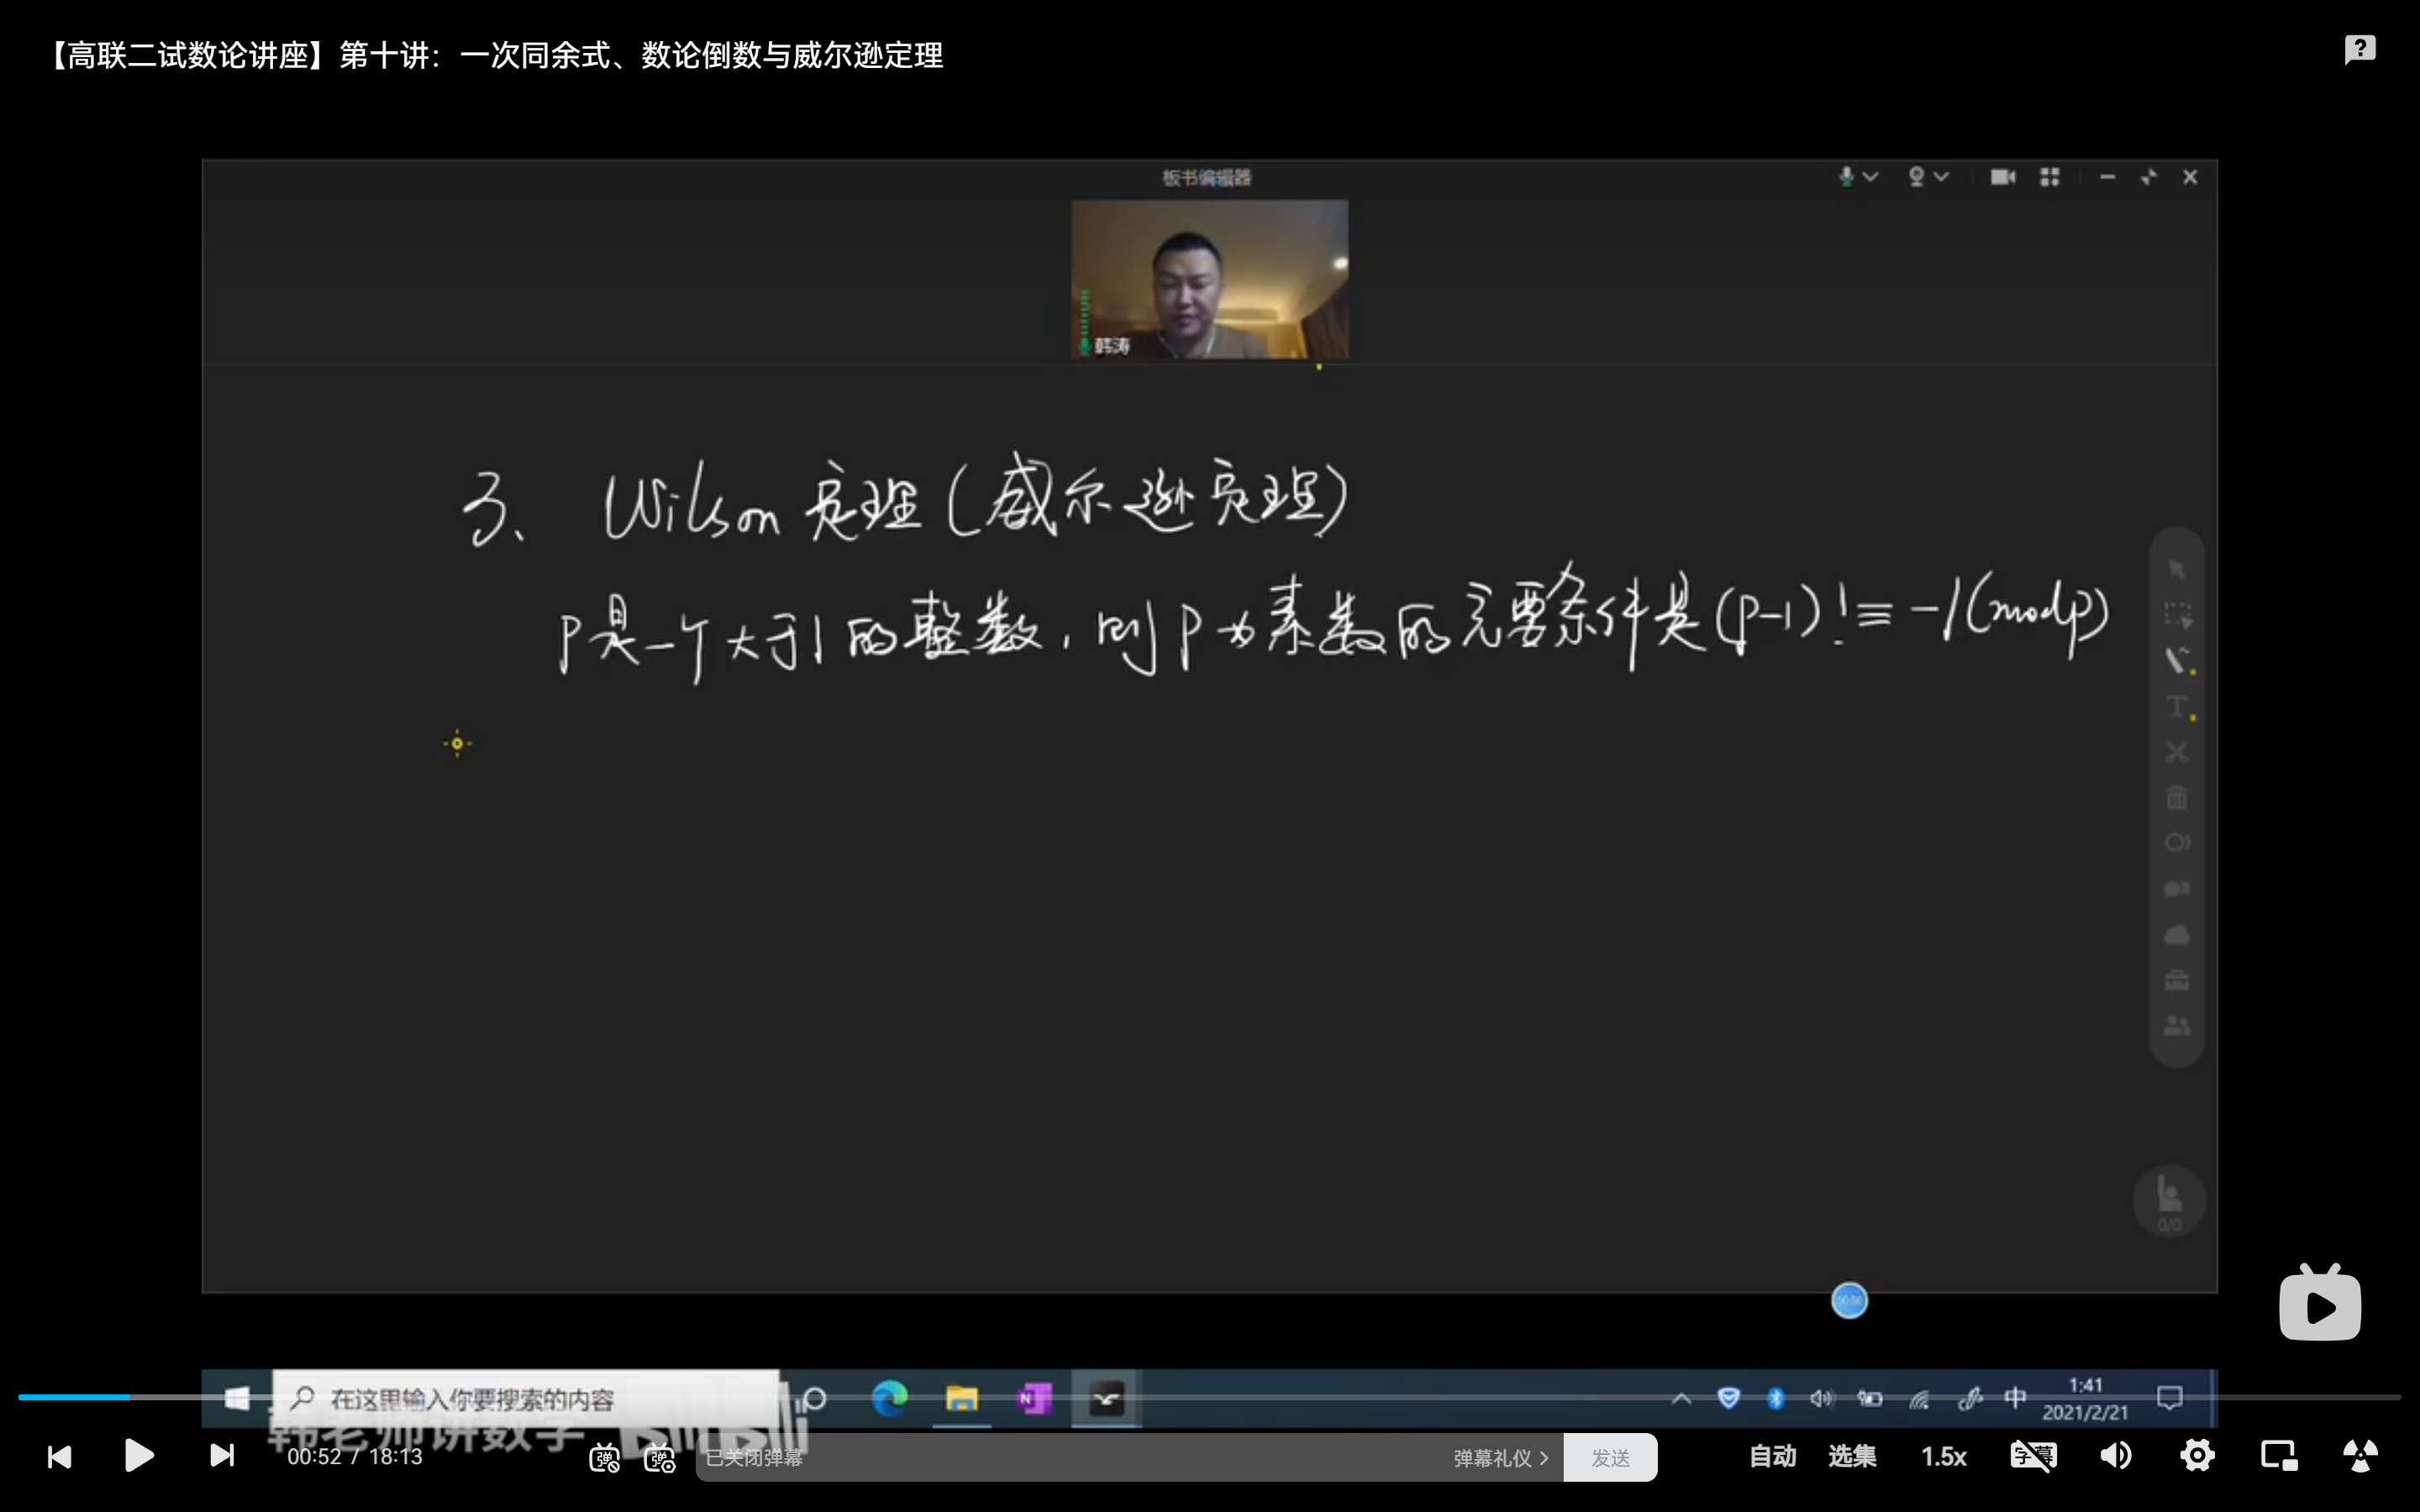 【高联二试数论讲座】第十讲：一次同余式、数论倒数与威尔逊定理
板书编辑器
韩涛
3、 Wilson 定理(威尔逊定理)
P是一个大于1的整数，则P为素数的充要条件是(P-1)!≡-1(modp)
0/0
在这里输入你要搜索的内容
中
1:41
2021/2/21
韩老师讲数学
bilibili
00:52 / 18:13
弹
弹
已关闭弹幕
弹幕礼仪 >
发送
自动
选集
1.5x
字幕